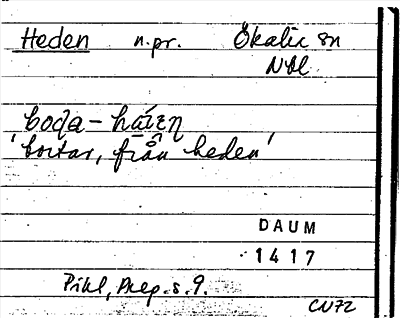 Heden n.pr. Ökalix sn
Nbl
'bortar, från heden'
DAUM
1417
Pihl, Prep. s. 9.
CN72